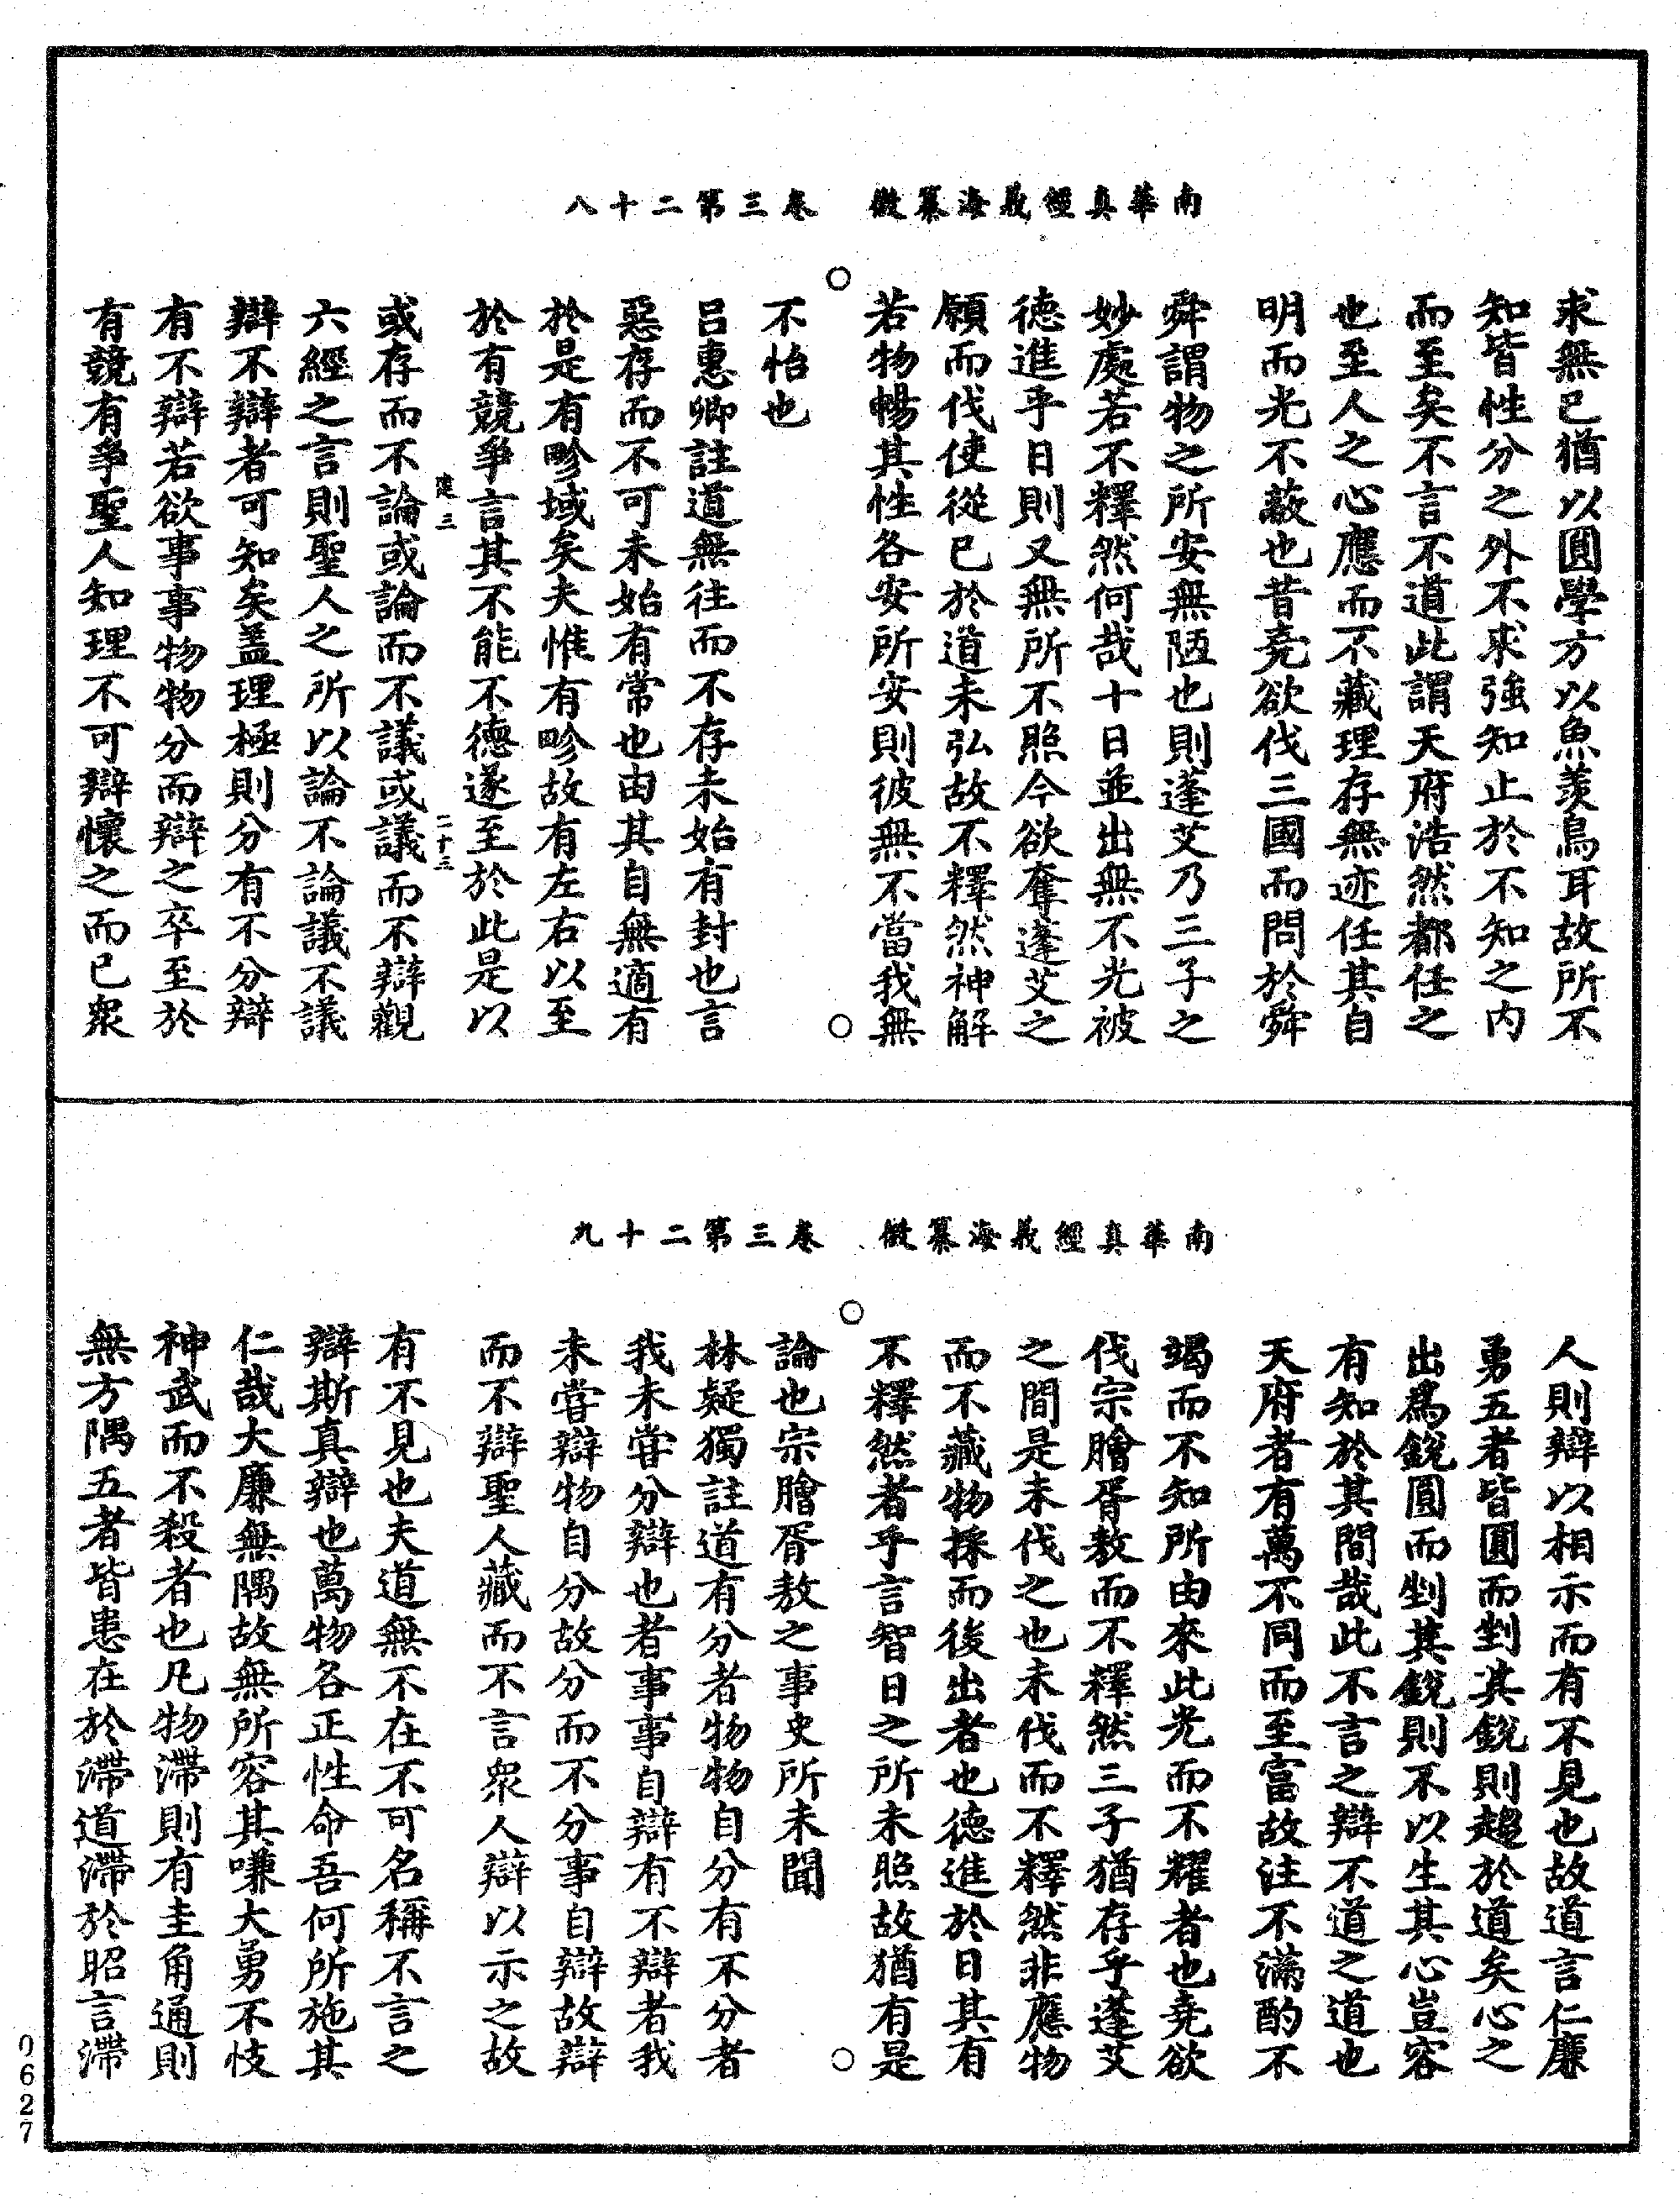 南華真經義海纂微　卷三第二十八
求無已猶以圓學方以魚羨鳥耳故所不
知皆性分之外不求強知止於不知之內
而至矣不言不道此謂天府浩然都任之
也至人之心應而不藏理存無迹任其自
明而光不蔽也昔堯欲伐三國而問於舜
舜謂物之所安無陋也則蓬艾乃三子之
妙處若不釋然何哉十日並出無不光被
德進乎日則又無所不照今欲奪蓬艾之
願而伐使從已於道未弘故不釋然神解
若物暢其性各安所安則彼無不當我無
不怡也
呂惠卿註道無往而不存未始有封也言
惡存而不可未始有常也由其自無適有
於是有畛域矣夫惟有畛故有左右以至
於有競爭言其不能不德遂至於此是以
建三　二十三
或存而不論或論而不議或議而不辯觀
六經之言則聖人之所以論不論議不議
辯不辯者可知矣蓋理極則分有不分辯
有不辯若欲事事物物分而辯之卒至於
有競有爭聖人知理不可辯懷之而已衆
南華真經義海纂微　卷三第二十九
人則辯以相示而有不見也故道言仁廉
勇五者皆圓而剉其銳則趨於道矣心之
出爲銳圓而剉其銳則不以生其心豈容
有知於其間哉此不言之辯不道之道也
天府者有萬不同而至富故注不滿酌不
竭而不知所由來此光而不耀者也堯欲
伐宗膾胥敖而不釋然三子猶存乎蓬艾
之間是未伐之也未伐而不釋然非應物
而不藏物採而後出者也德進於日其有
不釋然者乎言智日之所未照故猶有是
論也宗膾胥敖之事史所未聞
林疑獨註道有分者物物自分有不分者
我未嘗分辯也者事事自辯有不辯者我
未嘗辯物自分故分而不分事自辯故辯
而不辯聖人藏而不言衆人辯以示之故
有不見也夫道無不在不可名稱不言之
辯斯真辯也萬物各正性命吾何所施其
仁哉大廉無隅故無所容其嗛大勇不忮
神武而不殺者也凡物滯則有圭角通則
無方隅五者皆患在於滯道滯於昭言滯
0627